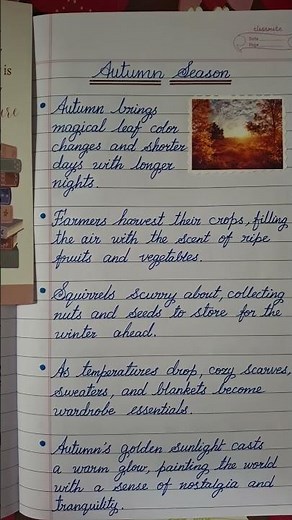 classmate
Date
Page
Autumn Season
• Autumn brings
magical leaf color
changes and shorter
days with longer
nights.
• Farmers harvest their crops, filling
the air with the scent of ripe
fruits and vegetables.
• Squirrels scurry about, collecting
nuts and seeds to store for the
winter ahead.
• As temperatures drop, cozy scarves,
sweaters, and blankets become
wardrobe essentials.
• Autumn's golden sunlight casts
a warm glow, painting the world
with a sense of nostalgia and
tranquility.
is